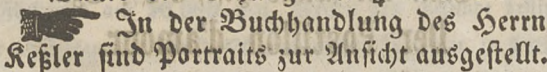 ☛ In der Buchhandlung des Herrn
Keßler sind Portraits zur Ansicht ausgestellt.